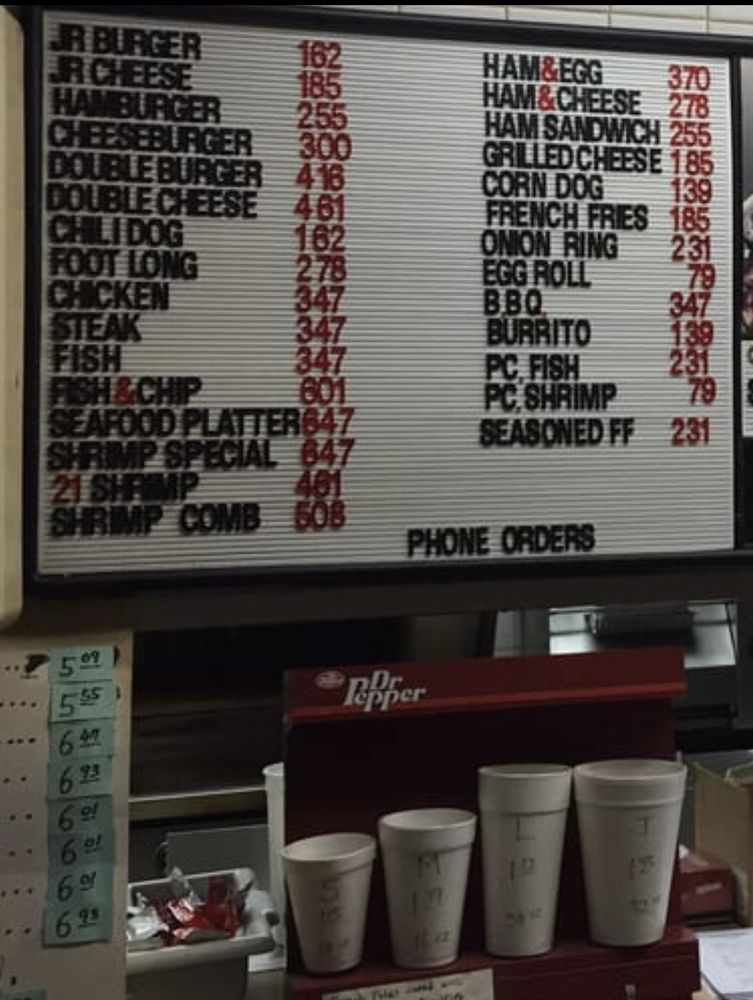 JR BURGER 162
JR CHEESE 185
HAMBURGER 255
CHEESEBURGER 300
DOUBLE BURGER 416
DOUBLE CHEESE 461
CHILI DOG 162
FOOT LONG 278
CHICKEN 347
STEAK 347
FISH 347
FISH&CHIP 601
SEAFOOD PLATTER 647
SHRIMP SPECIAL 647
21 SHRIMP 461
SHRIMP COMB 508
HAM&EGG 370
HAM&CHEESE 278
HAM SANDWICH 255
GRILLED CHEESE 185
CORN DOG 139
FRENCH FRIES 185
ONION RING 231
EGG ROLL 79
B.B.Q. 347
BURRITO 139
PC. FISH 231
PC. SHRIMP 79
SEASONED FF 231
PHONE ORDERS
5 09
5 55
6 47
6 93
6 01
6 01
6 01
6 93
Dr Pepper
S
M
L
J